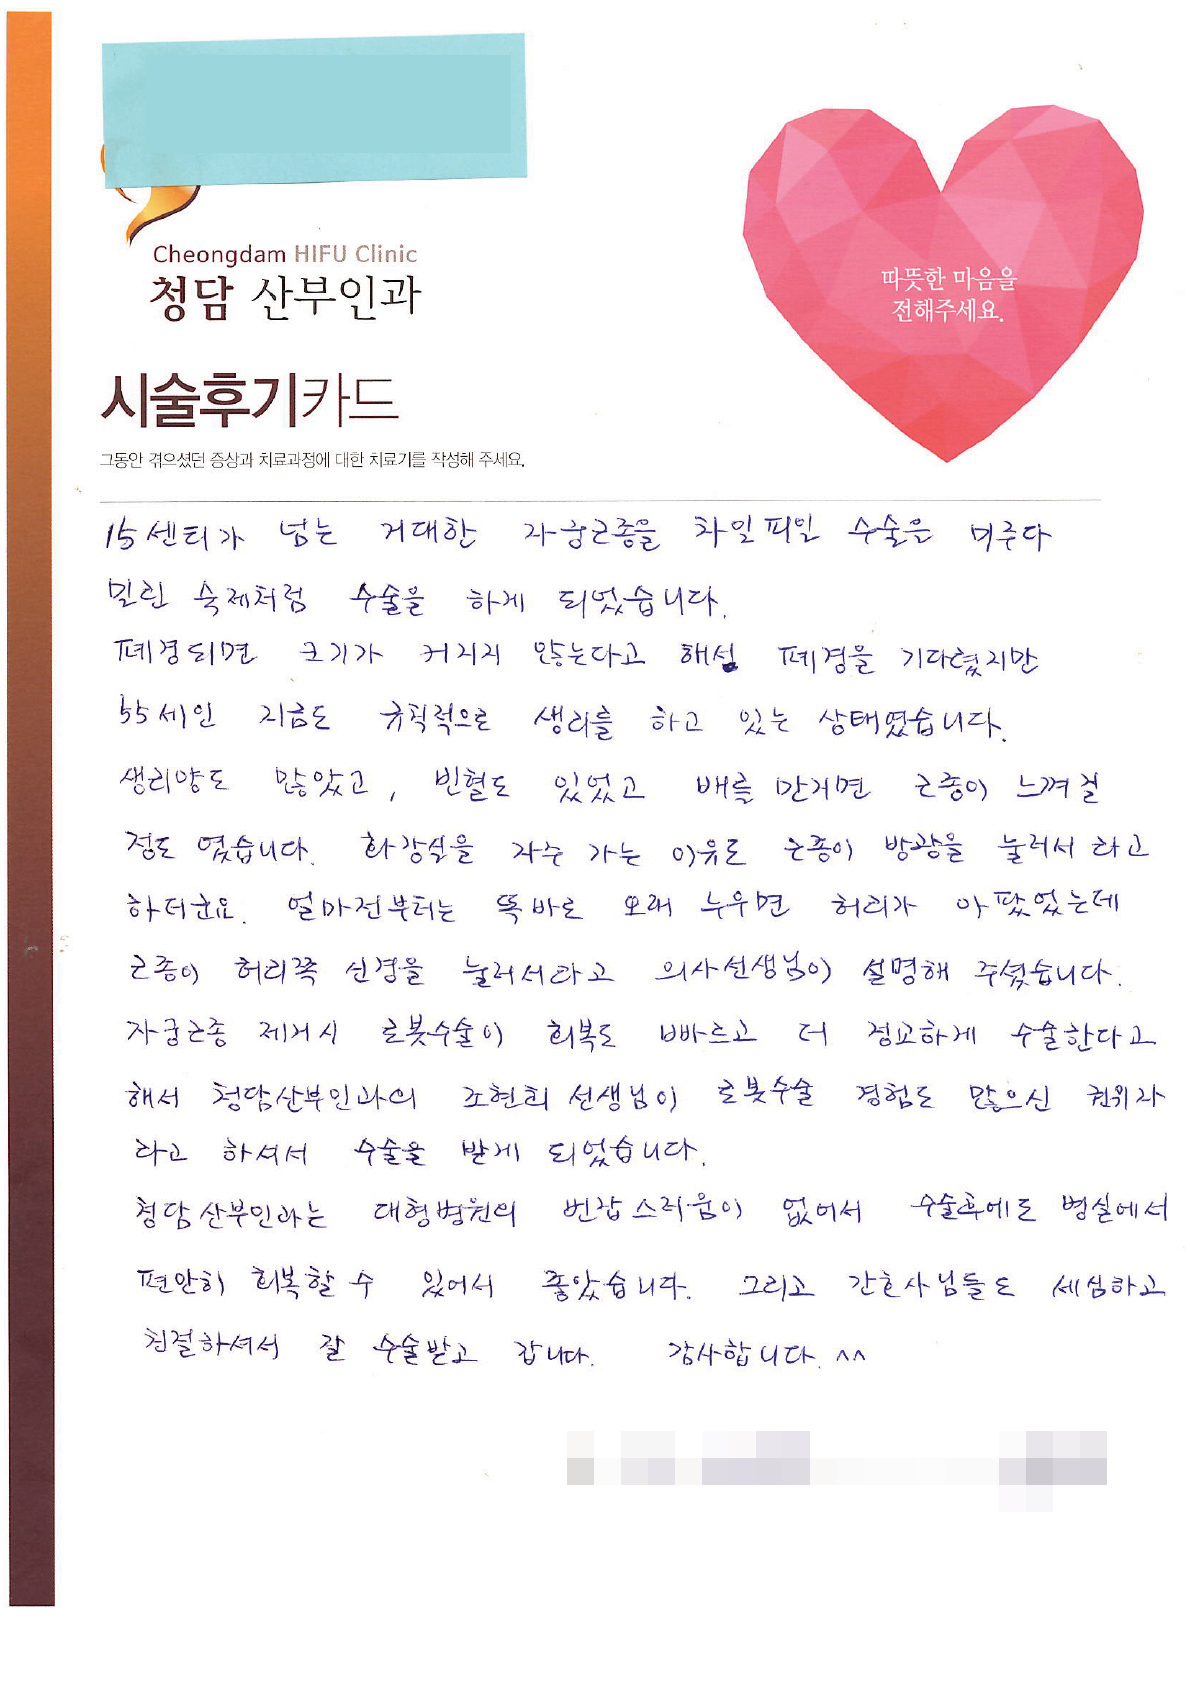 Cheongdam HIFU Clinic
청담 산부인과
따뜻한 마음을
전해주세요.
시술후기카드
그동안 겪으셨던 증상과 치료과정에 대한 치료기를 작성해 주세요.
15센티가 넘는 거대한 자궁근종을 차일피일 수술을 미루다
밀린 숙제처럼 수술을 하게 되었습니다.
폐경되면 크기가 커지지 않는다고 해서 폐경을 기다렸지만
55세인 지금도 규칙적으로 생리를 하고 있는 상태였습니다.
생리양도 많았고, 빈혈도 있었고 배를 만지면 근종이 느껴질
정도 였습니다. 화장실을 자주 가는 이유도 근종이 방광을 눌러서 라고
하더군요. 얼마전부터는 똑바로 오래 누우면 허리가 아팠었는데
근종이 허리쪽 신경을 눌러서라고 의사선생님이 설명해 주셨습니다.
자궁근종 제거시 로봇수술이 회복도 빠르고 더 정교하게 수술한다고
해서 청담산부인과의 조현희 선생님이 로봇수술 경험도 많으신 권위자
라고 하셔서 수술을 받게 되었습니다.
청담산부인과는 대형병원의 번잡스러움이 없어서 수술후에도 병실에서
편안히 회복할 수 있어서 좋았습니다. 그리고 간호사님들도 세심하고
친절하셔서 잘 수술받고 갑니다. 감사합니다. ^^